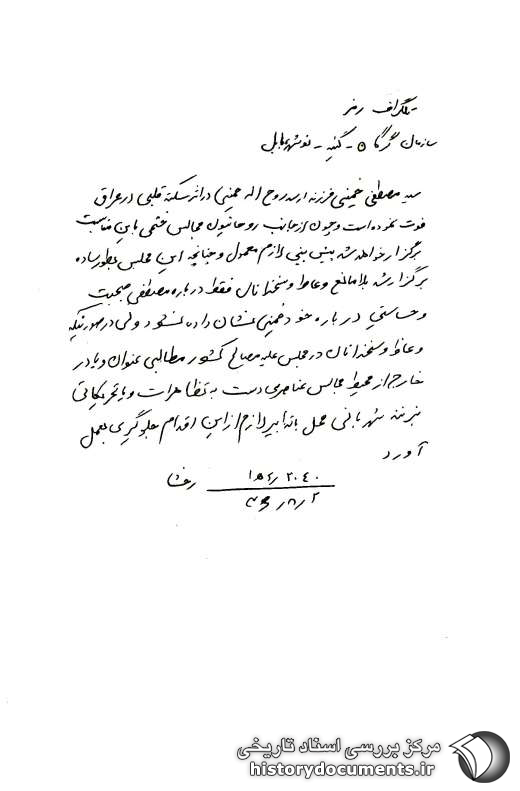 تلگراف رمز
سازمان گرگان - گنبد - نوشهر بابل
سید مصطفی خمینی فرزند ارشد روح اله خمینی در اثر سکته قلبی در عراق
فوت نموده است و چون از جانب روحانیون مجالس ختمی باین مناسبت
برگزار خواهد شد پیش بینی لازم معمول و چنانچه این مجلس بطور ساده
برگزار شد بلامانع و وعاظ و سخنرانان فقط درباره مصطفی صحبت
و حساسیتی درباره خود خمینی نشان داده نشود ولی در صورتیکه
وعاظ و سخنرانان در مجلس علیه مصالح کشور مطالبی عنوان و یا در
خارج از محیط مجالس عناصری دست به تظاهرات و یا تحریکاتی
بزنند شهربانی محل با تدابیر لازم از این اقدام جلوگیری بعمل
آورد
رفشا
مرکز بررسی اسناد تاریخی
historydocuments.ir